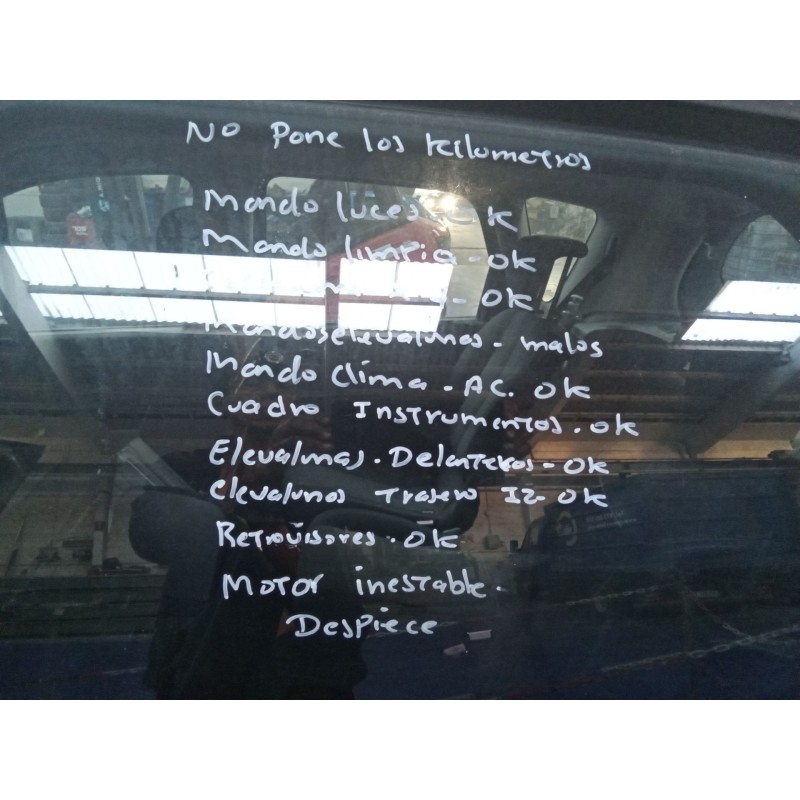 No Pone los kilometros
Mando luces - OK
Mando limpia - OK
- OK
Mandos elevalunas - malos
Mando Clima - AC. OK
Cuadro Instrumentos. OK
Elevalunas. Delanteros - OK
elevalunas trasero Iz - OK
Retrovisores. OK
Motor inestable.
Despiece